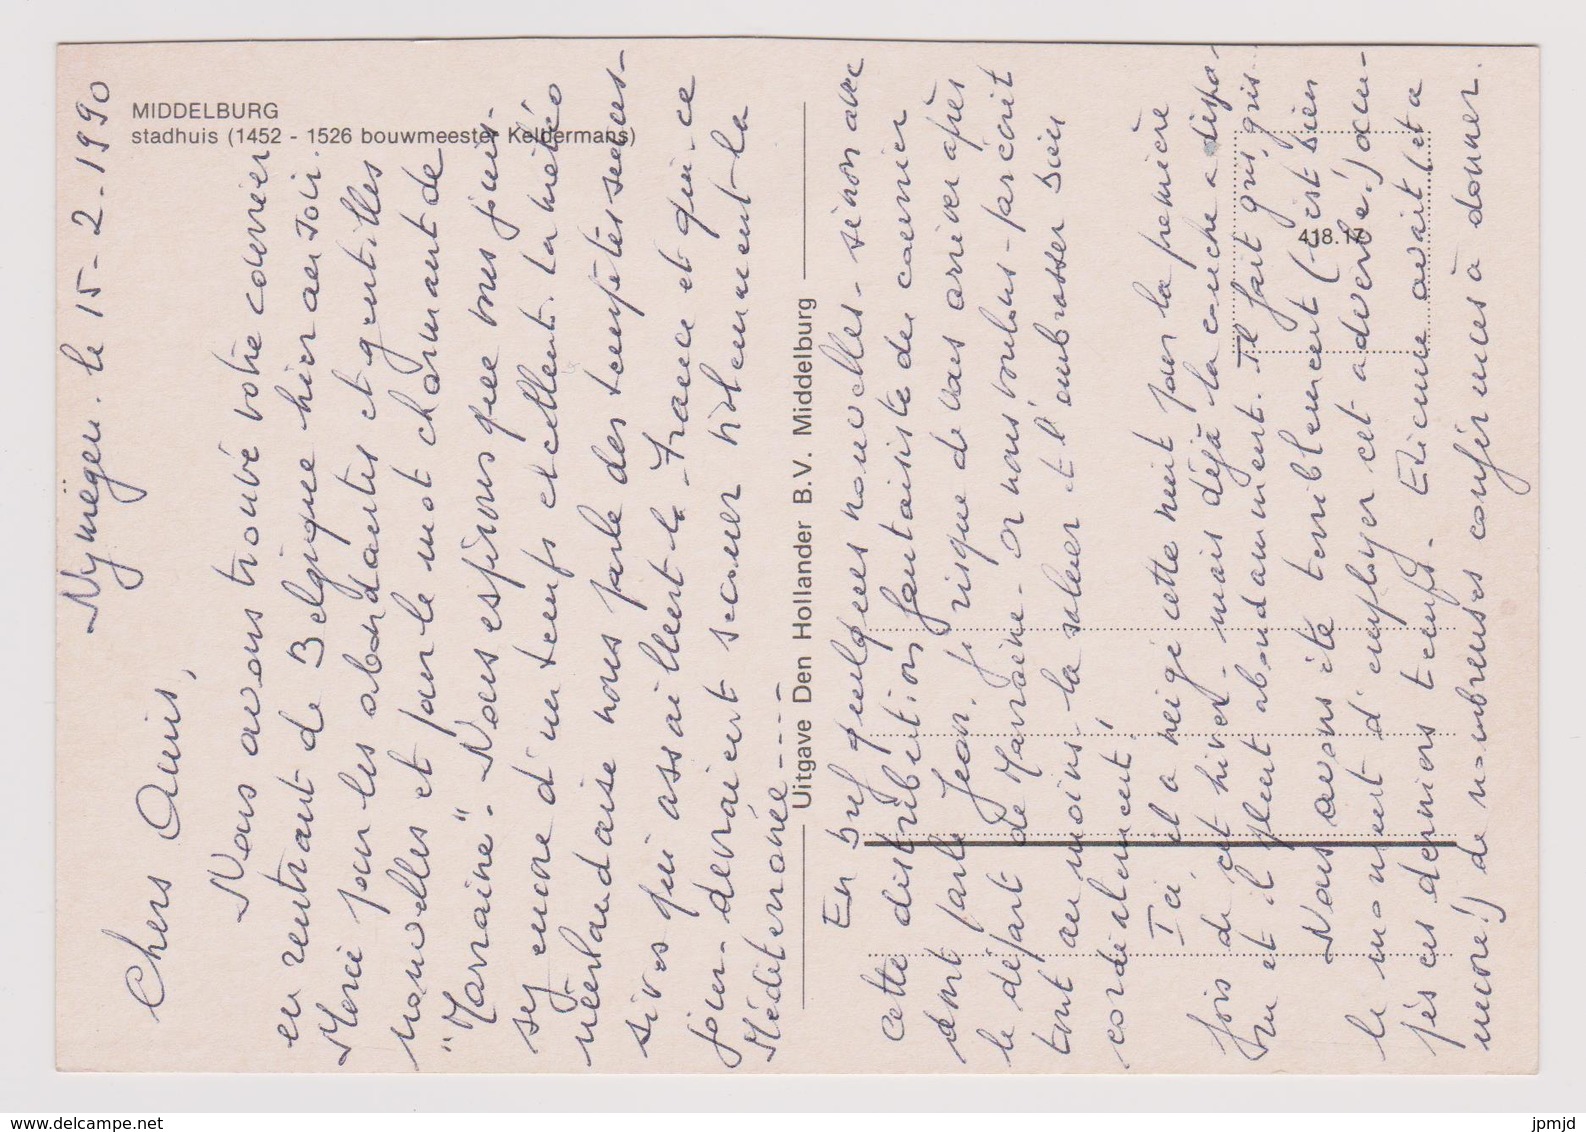 MIDDELBURG
stadhuis (1452 - 1526 bouwmeester Keldermans)
418.17
Uitgave Den Hollander B.V. Middelburg
Nymègen. le 15-2-1990
Chers Amis,
Nous avons trouvé votre courrier
en rentrant de Belgique hier au soir.
Merci pour les abondantes et gentilles
nouvelles et pour le mot charmant de
"Marraine". Nous espérons que vous jouis-
sez encore d'un temps excellent. La météo
néerlandaise nous parle des tempêtes succes-
sives qui assaillent la France et qui - ce
jour - devraient secouer violemment la
Méditerranée ----
En bref quelques nouvelles - sinon avec
cette distribution fantaisiste du courrier
dont parle Jean, je risque de vous arriver après
le départ de Marraine - or nous voulons - par écrit
tout au moins - la saluer et l'embrasser bien
cordialement.
Ici, il a neigé cette nuit pour la première
fois de cet hiver - mais déjà la couche a dispa-
ru et il pleut abondamment. Il fait gris, gris...
Nous avons été terriblement (c'est bien
le moment d'employer cet adverbe!) occu-
pés ces derniers temps. Etienne avait (et a
encore!) de nombreuses conférences à donner.
www.delcampe.net
jpmjd